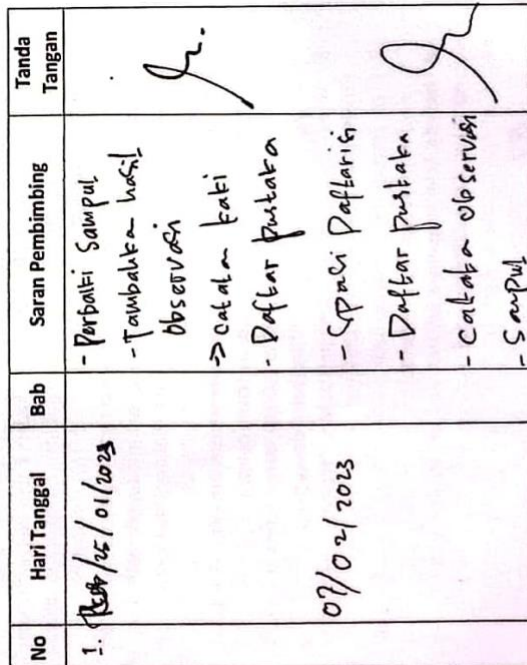 No Hari Tanggal Bab Saran Pembimbing Tanda Tangan
1. /25/01/2023
- Perbaiki Sampul
- Tambahka hasil
observasi
-> catatan kaki
- Daftar pustaka
07/02/2023
- Spasi Daftarisi
- Daftar pustaka
- Catata observasi
- Sampul